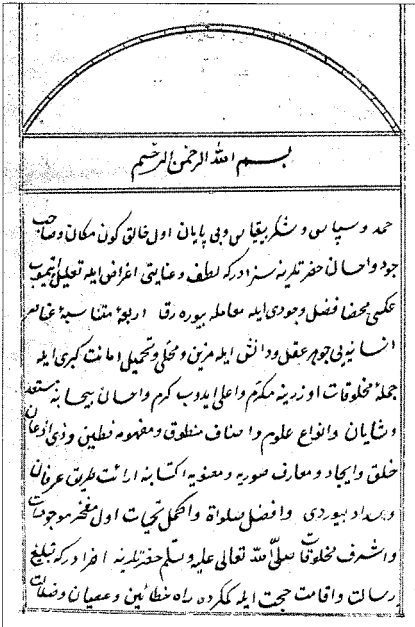 بسم الله الرحمن الرحيم
حمد و سپاس و شكر بيقياس و بى پايان اول خالق كون مكان و صاحب
جود و احسان حضرتلرينه سزادركه لطف و عنايتى اغراض ايله تعليل اتميوب
عكسى محضا فضل وجودى ايله معامله بيوره رق اربعهٔ متناسبهٔ عناصر
انسانيه يى جوهر عقل و دانش ايله مزين و محلى و تحميل امانت كبرى ايله
جملهٔ مخلوقات اوزرينه مكرم و اعلى ايدوب كرم و احسان بيحسابنه مستعد
و شايان و انواع علوم و اصناف منطوق و مفهومه فطين و ذى اذعان
خلق و ايجاد و معارف صوريه و معنويه اكتسابنه ارائت طريق عرفان
و امداد بيوردى و افضل صلوة و اكمل تحيات اول مفخر موجودات
و اشرف مخلوقات صلى الله تعالى عليه وسلم حضرتلرينه احرادركه تبليغ
رسالت و اقامت حجت ايله كمكرده راه خطائين و عصيان و ضلالت